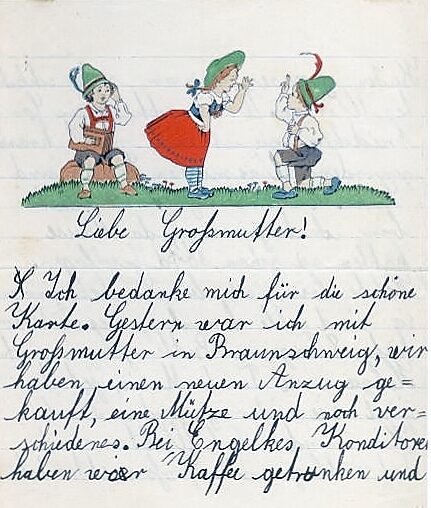 Liebe Großmutter!
Ich bedanke mich für die schöne
Karte. Gestern war ich mit
Großmutter in Braunschweig, wir
haben einen neuen Anzug ge=
kauft, eine Mütze und noch ver=
schiedenes. Bei Engelkes, Konditorei
haben wir Kaffee getrunken und